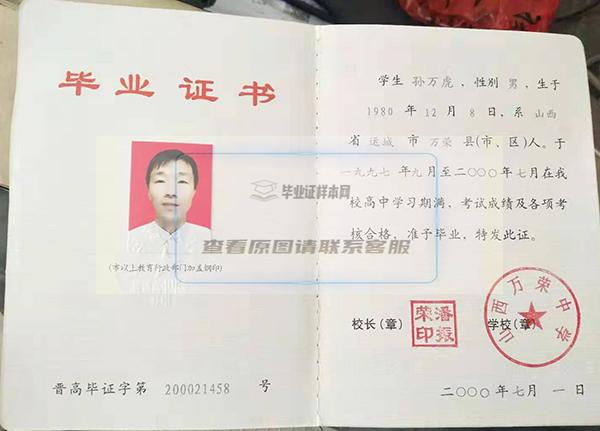 毕业证书
(市以上教育行政部门加盖钢印)
晋高毕证字第 200021458 号
学生 孙万虎 、性别 男 ,生于
1980 年 12 月 8 日、系 山西
省 运城 市 万荣 县(市、区)人。于
一九九七 年 九 月至 二〇〇〇 年 七 月在我
校高中学习期满、考试成绩及各项考
核合格,准予毕业,特发此证。
校长(章)
潘振荣印
学校(章)
山西万荣中学
二〇〇〇 年 七 月 一 日
毕业证样本网
查看原图请联系客服